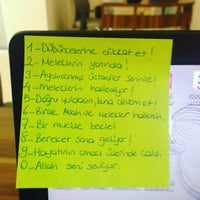 1_Düşüncelerine dikkat et!
2_Meleklerin yanında!
3_Aydınlanmış Üstadlar seninle!
4_Meleklerin hallediyor!
5_Doğru yoldasın, buna devam et!
6_Bırak, Allah ve melekler halletsin.
7_Bir mucize bekle!
8_Bereket sana geliyor!
9_Hayatının amacı üzerinde çalış.
0_Allah seni seviyor.